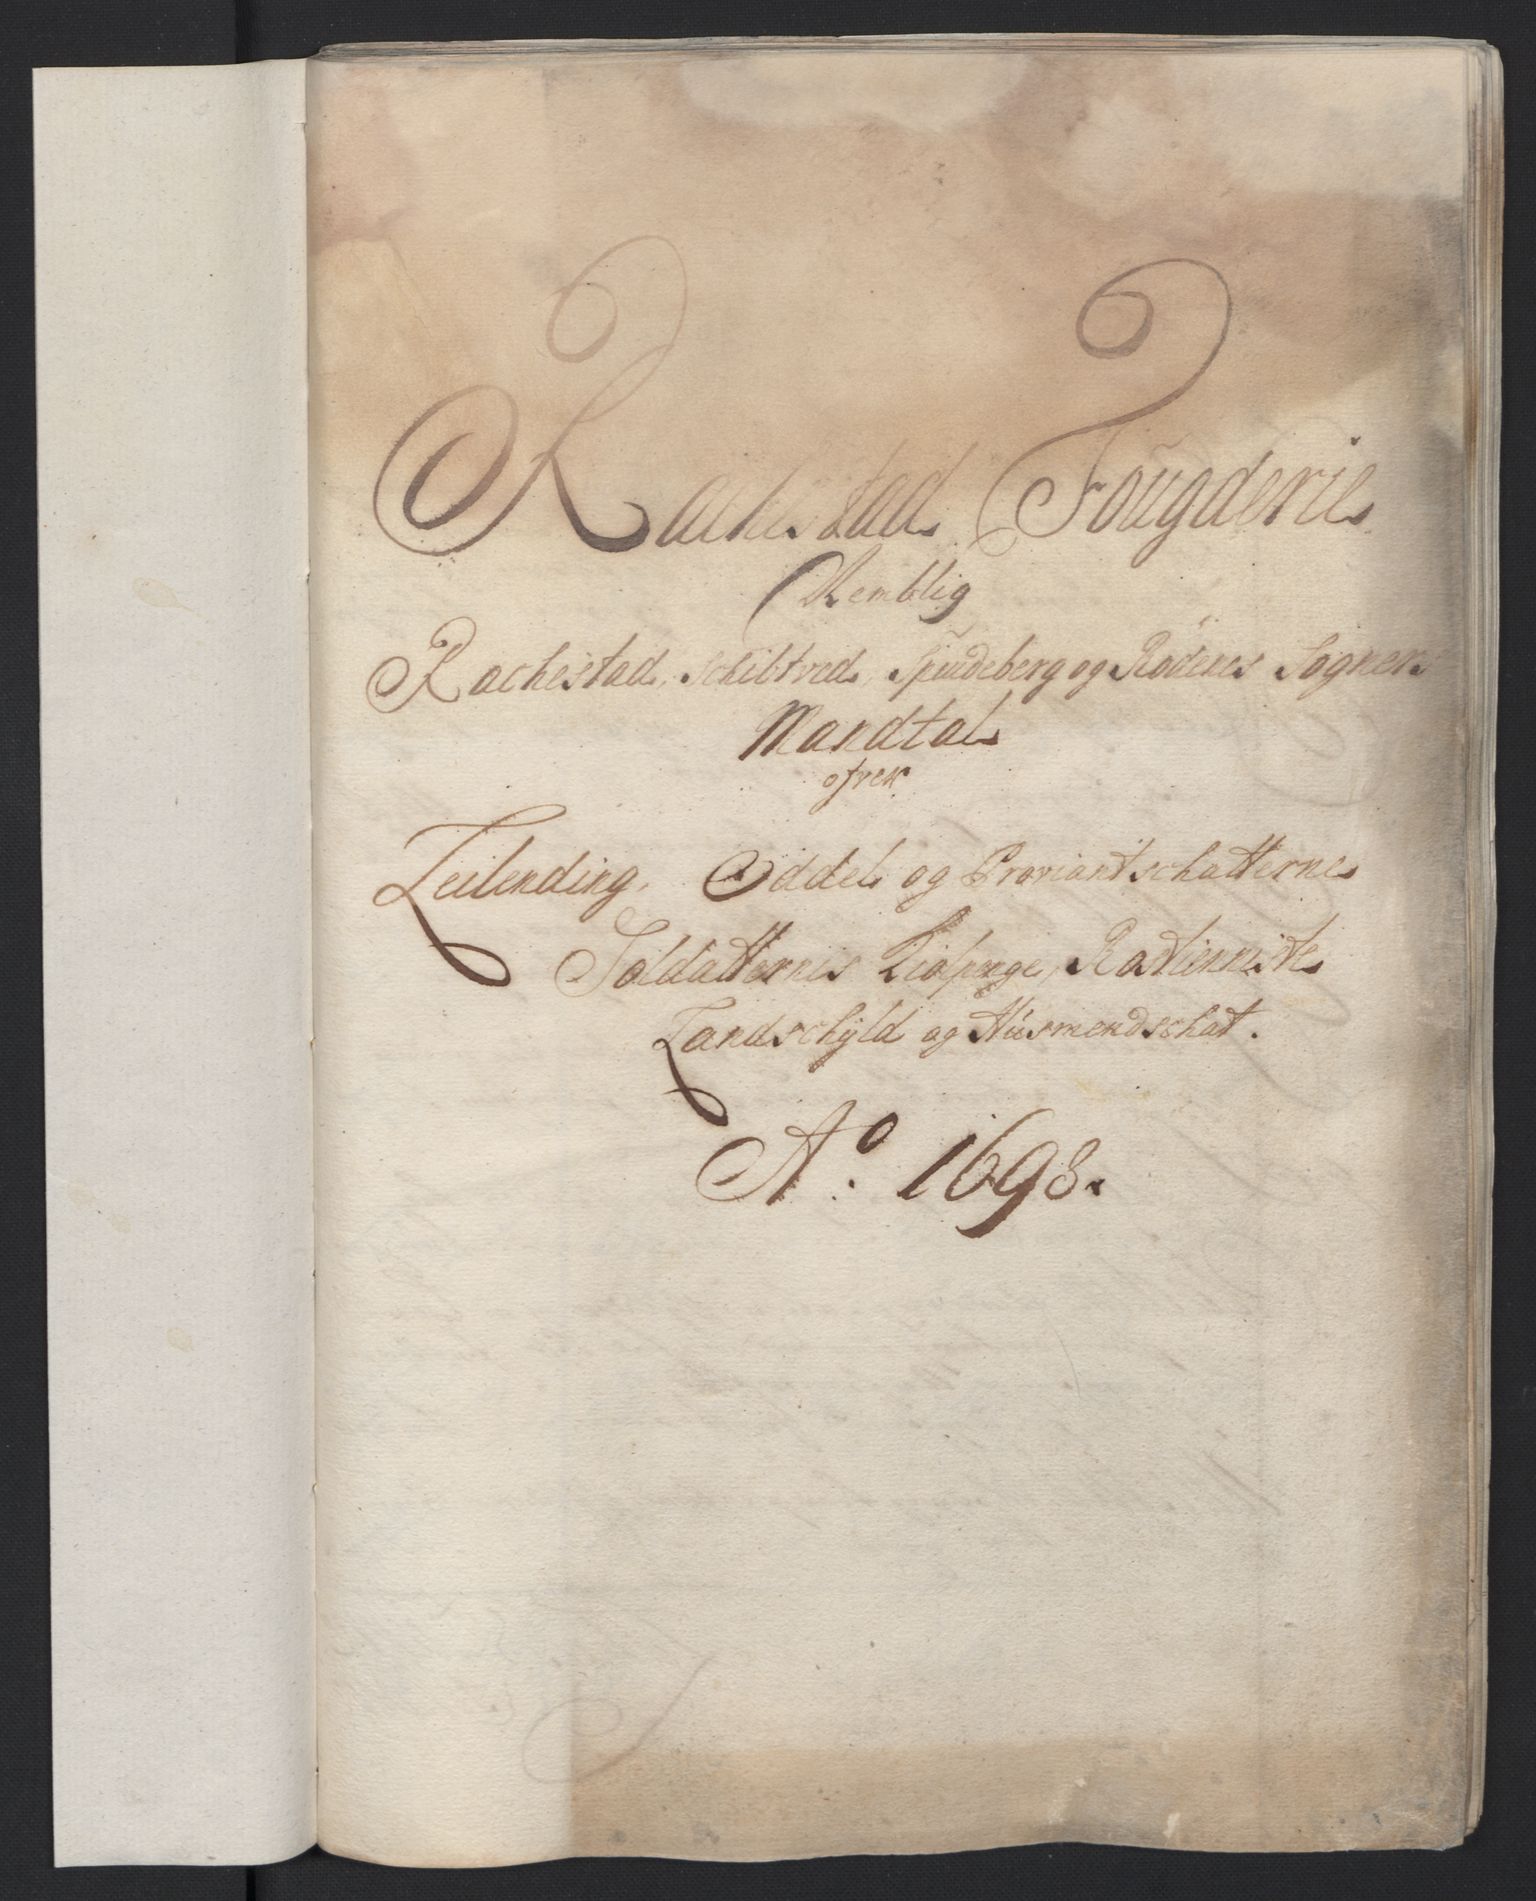 Rachestad Fougderie
Nemblig
Rachestad, Schibtved, Spudeberg og Rödenes Sogners
Mandtal
ofver
Leilending, Oddel og Proviantschatterne
Soldatternis Kiolpenge, Rostienniste
Landschyld og Husmendschat.
Ao. 1698.